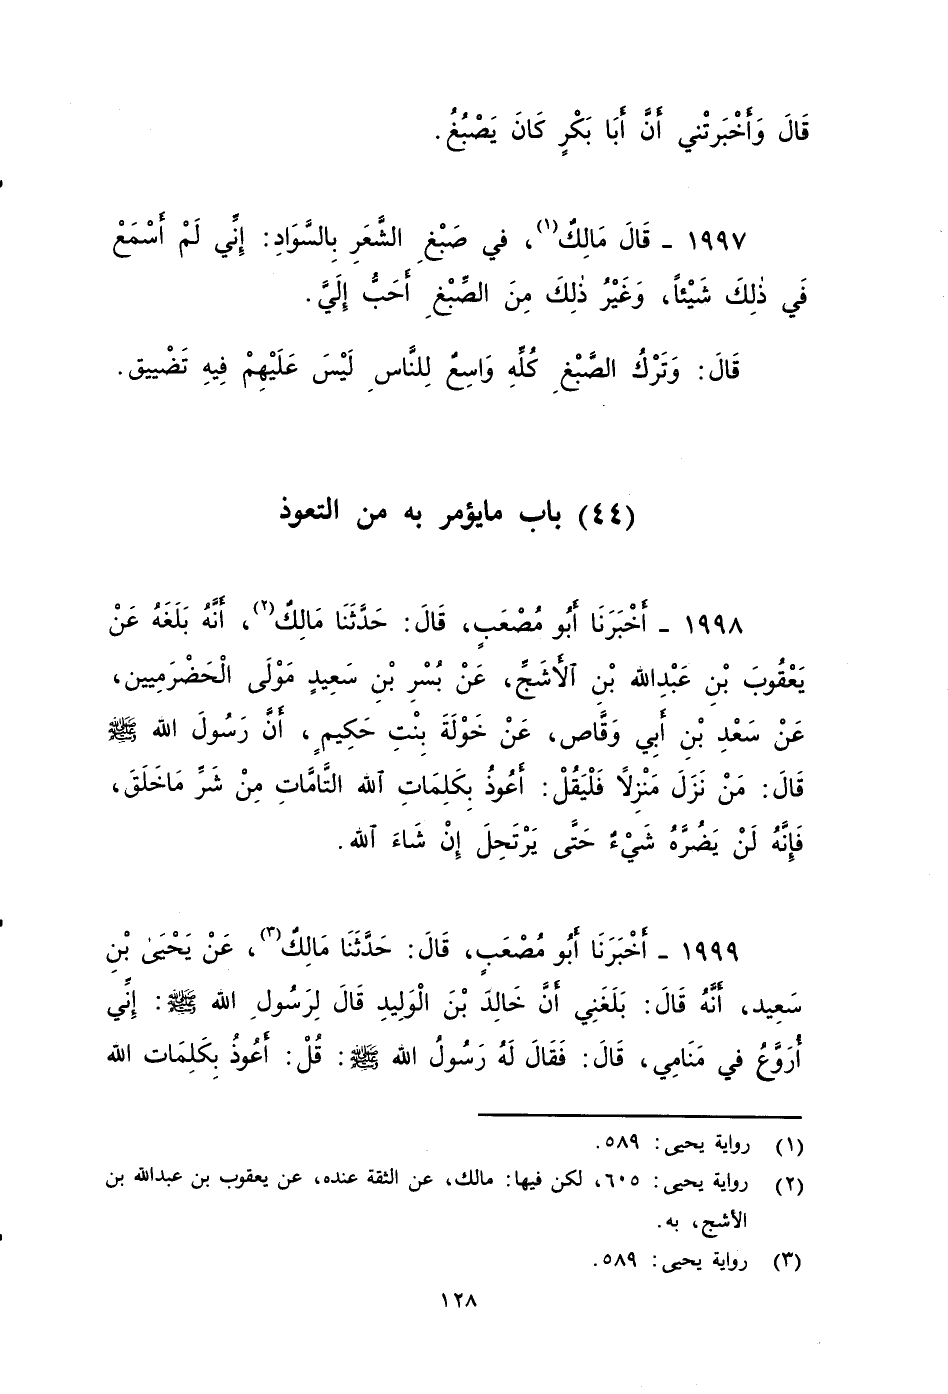 قَالَ وَأَخْبَرَتْني أَنَّ أَبَا بَكْرٍ كَانَ يَصْبُغُ.
١٩٩٧ - قَالَ مَالِكٌ(١)، في صَبْغِ الشَّعَرِ بِالسَّوَادِ: إِنِّي لَمْ أَسْمَعْ
فَي ذٰلِكَ شَيْئاً، وَغَيْرُ ذٰلِكَ مِنَ الصِّبْغِ أَحَبُّ إِلَيَّ.
قَالَ: وَتَرْكُ الصَّبْغِ كُلِّهِ وَاسِعٌ لِلنَّاسِ لَيْسَ عَلَيْهِمْ فِيهِ تَضْييق.
(٤٤) باب مايؤمر به من التعوذ
١٩٩٨ - أَخْبَرَنَا أَبُو مُصْعَبٍ، قَالَ: حَدَّثَنَا مَالِكٌ(٢)، أَنَّهُ بَلَغَهُ عَنْ
يَعْقُوبَ بْنِ عَبْدِالله بْنِ ٱلأَشَجِّ، عَنْ بُسْرِ بْنِ سَعِيدٍ مَوْلَى الْحَضْرَمِيين،
عَنْ سَعْدِ بْنِ أَبِي وَقَّاص، عَنْ خَوْلَةَ بِنْتِ حَكِيمٍ، أَنَّ رَسُولَ الله ﷺ
قَالَ: مَنْ نَزَلَ مَنْزِلاً فَلْيَقُلْ: أَعُوذُ بِكَلِمَاتِ ٱلله التَّامَّاتِ مِنْ شَرِّ مَاخَلَقَ،
فَإِنَّهُ لَنْ يَضُرَّهُ شَيْءٌ حَتَّى يَرْتَحِلَ إِنْ شَاءَ ٱلله.
١٩٩٩ - أَخْبَرَنَا أَبُو مُصْعَبٍ، قَالَ: حَدَّثَنَا مَالِكٌ(٣)، عَنْ يَحْيَىٰ بْنِ
سَعِيد، أَنَّهُ قَالَ: بَلَغَنِي أَنَّ خَالِدَ بْنَ الْوَلِيدِ قَالَ لِرَسُولِ الله ﷺ: إِنِّي
أُرَوَّعُ في مَنَامِي، قَالَ: فَقَالَ لَهُ رَسُولُ الله ﷺ: قُلْ: أَعُوذُ بِكَلِمَات الله
(١) رواية يحيى: ٥٨٩.
(٢) رواية يحيى: ٦٠٥، لكن فيها: مالك، عن الثقة عنده، عن يعقوب بن عبدالله بن
الأشج، به.
(٣) رواية يحيى: ٥٨٩.
١٢٨